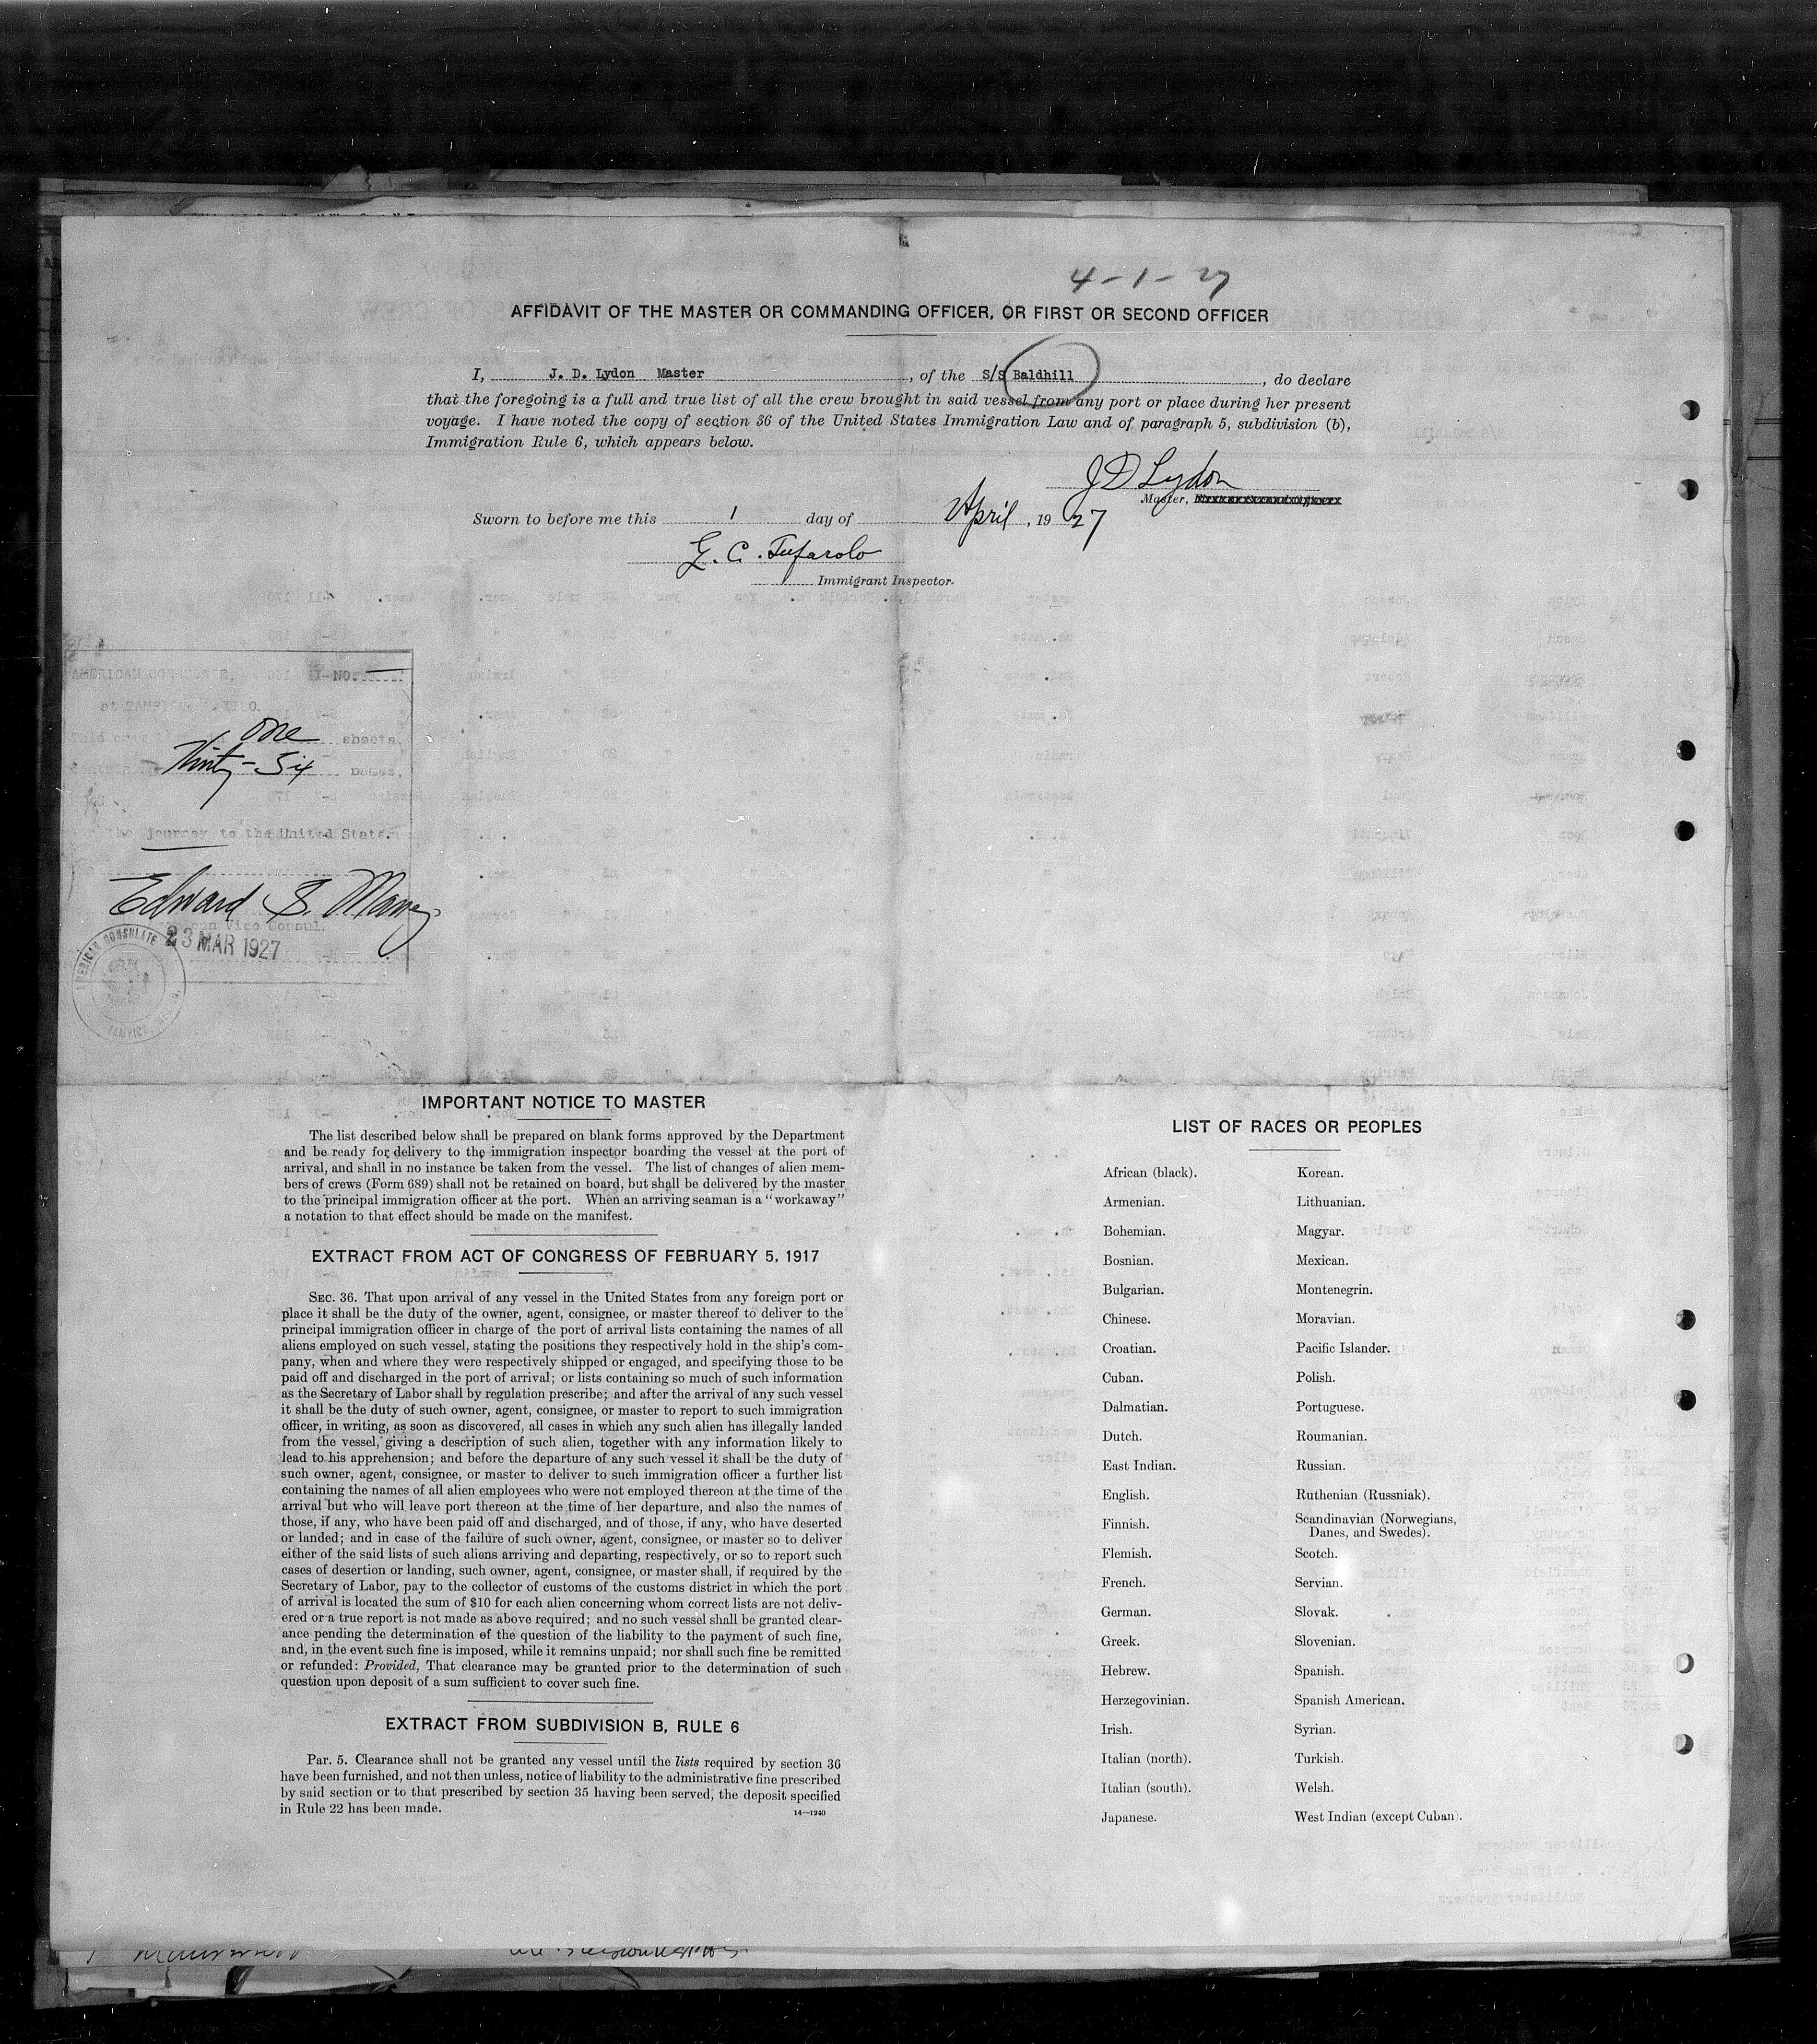 4-1-27
AFFIDAVIT OF THE MASTER OR COMMANDING OFFICER, OR FIRST OR SECOND OFFICER
I, J. D. Lydon Master, of the S/S Baldhill, do declare
that the foregoing is a full and true list of all the crew brought in said vessel from any port or place during her present
voyage. I have noted the copy of section 36 of the United States Immigration Law and of paragraph 5, subdivision (b),
Immigration Rule 6, which appears below.
J D Lydon
Master,
Sworn to before me this 1 day of April, 1927
G. C. Tufarolo
Immigrant Inspector.
AMERICAN CONSULATE,
NO.
at TAMPICO, MEXICO.
This crew one sheets,
Thirty-Six names,
the journey to the United State.
Edward S. Maney
Vice Consul.
23 MAR 1927
AMERICAN CONSULATE
TAMPICO,
IMPORTANT NOTICE TO MASTER
The list described below shall be prepared on blank forms approved by the Department
and be ready for delivery to the immigration inspector boarding the vessel at the port of
arrival, and shall in no instance be taken from the vessel. The list of changes of alien mem-
bers of crews (Form 689) shall not be retained on board, but shall be delivered by the master
to the principal immigration officer at the port. When an arriving seaman is a "workaway"
a notation to that effect should be made on the manifest.
EXTRACT FROM ACT OF CONGRESS OF FEBRUARY 5, 1917
SEC. 36. That upon arrival of any vessel in the United States from any foreign port or
place it shall be the duty of the owner, agent, consignee, or master thereof to deliver to the
principal immigration officer in charge of the port of arrival lists containing the names of all
aliens employed on such vessel, stating the positions they respectively hold in the ship's com-
pany, when and where they were respectively shipped or engaged, and specifying those to be
paid off and discharged in the port of arrival; or lists containing so much of such information
as the Secretary of Labor shall by regulation prescribe; and after the arrival of any such vessel
it shall be the duty of such owner, agent, consignee, or master to report to such immigration
officer, in writing, as soon as discovered, all cases in which any such alien has illegally landed
from the vessel, giving a description of such alien, together with any information likely to
lead to his apprehension; and before the departure of any such vessel it shall be the duty of
such owner, agent, consignee, or master to deliver to such immigration officer a further list
containing the names of all alien employees who were not employed thereon at the time of the
arrival but who will leave port thereon at the time of her departure, and also the names of
those, if any, who have been paid off and discharged, and of those, if any, who have deserted
or landed; and in case of the failure of such owner, agent, consignee, or master so to deliver
either of the said lists of such aliens arriving and departing, respectively, or so to report such
cases of desertion or landing, such owner, agent, consignee, or master shall, if required by the
Secretary of Labor, pay to the collector of customs of the customs district in which the port
of arrival is located the sum of $10 for each alien concerning whom correct lists are not deliv-
ered or a true report is not made as above required; and no such vessel shall be granted clear-
ance pending the determination of the question of the liability to the payment of such fine,
and, in the event such fine is imposed, while it remains unpaid; nor shall such fine be remitted
or refunded: Provided, That clearance may be granted prior to the determination of such
question upon deposit of a sum sufficient to cover such fine.
EXTRACT FROM SUBDIVISION B, RULE 6
Par. 5. Clearance shall not be granted any vessel until the lists required by section 36
have been furnished, and not then unless, notice of liability to the administrative fine prescribed
by said section or to that prescribed by section 35 having been served, the deposit specified
in Rule 22 has been made.
14—1240
LIST OF RACES OR PEOPLES
African (black).
Armenian.
Bohemian.
Bosnian.
Bulgarian.
Chinese.
Croatian.
Cuban.
Dalmatian.
Dutch.
East Indian.
English.
Finnish.
Flemish.
French.
German.
Greek.
Hebrew.
Herzegovinian.
Irish.
Italian (north).
Italian (south).
Japanese.
Korean.
Lithuanian.
Magyar.
Mexican.
Montenegrin.
Moravian.
Pacific Islander.
Polish.
Portuguese.
Roumanian.
Russian.
Ruthenian (Russniak).
Scandinavian (Norwegians,
Danes, and Swedes).
Scotch.
Servian.
Slovak.
Slovenian.
Spanish.
Spanish American.
Syrian.
Turkish.
Welsh.
West Indian (except Cuban).